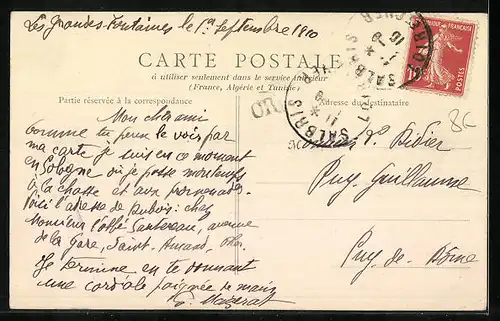 Les Grandes-Fontaines le 1er septembre 1910
CARTE POSTALE
à utiliser seulement dans le service intérieur
(France, Algérie et Tunisie)
Partie réservée à la correspondance
Adresse du destinataire
Mon cher ami
comme tu peux le voir par
ma carte je suis en ce moment
en Sologne où je passe mon temps
à la chasse et aux promenades.
Voici l'adresse de Dubois: chez
Monsieur l'abbé avenue
de la gare, Saint-Amand, Cher.
Je termine en te donnant
une cordiale poignée de main
Monsieur P. Didier
Puy-Guillaume
Puy-de-Dôme
OR
SALBRIS
LOIR-ET-CHER
SALBRIS
POSTES
10c
8€